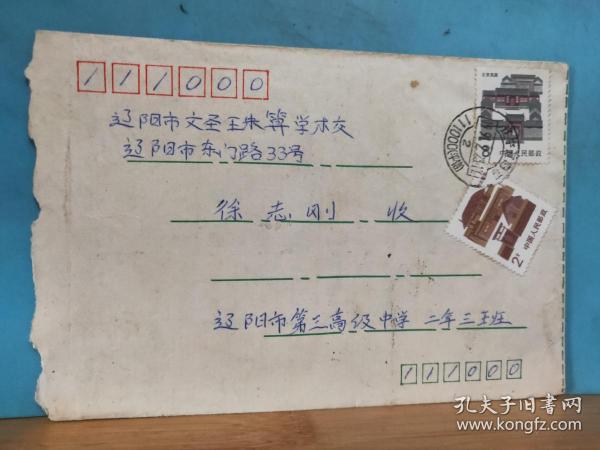 111000
辽阳市文圣王朱算学校
辽阳市东门路33号
徐志刚 收
辽阳市第三高级中学 二年三班
111000
北京民居
中国人民邮政
中国人民邮政
2分
孔夫子旧书网
www.kongfz.com